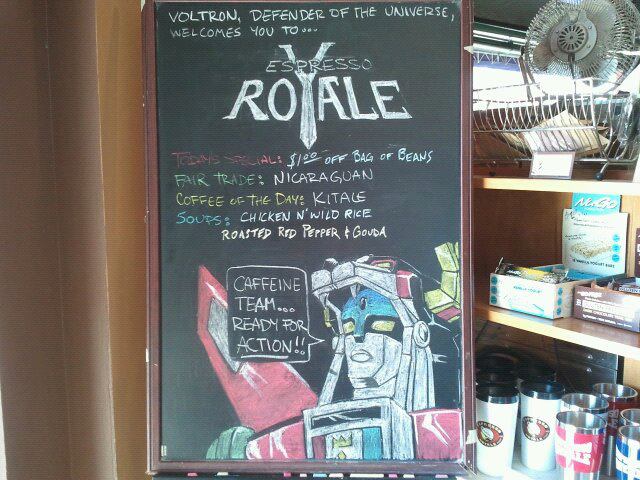 VOLTRON, DEFENDER OF THE UNIVERSE,
WELCOMES YOU TO...
ESPRESSO
ROYALE
TODAY'S SPECIAL: $1.00 OFF BAG OF BEANS
FAIR TRADE: NICARAGUAN
COFFEE OF THE DAY: KITALE
SOUPS: CHICKEN N' WILD RICE
ROASTED RED PEPPER & GOUDA
CAFFEINE
TEAM...
READY FOR
ACTION!!